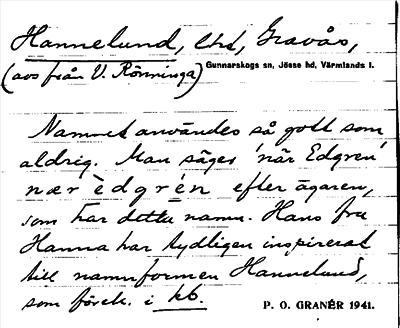 Hannelund, lht, Gravås,
(avs från V. Rönninga) Gunnarskogs sn, Jösse hd, Värmlands l.
Namnet användes så gott som
aldrig. Man säger 'när Edgren'
nær èdgrén efter ägaren,
som har detta namn. Hans fru
Hanna har tydligen inspirerat
till namnformen Hannelund,
som förek. i kb.
P. O. GRANÉR 1941.